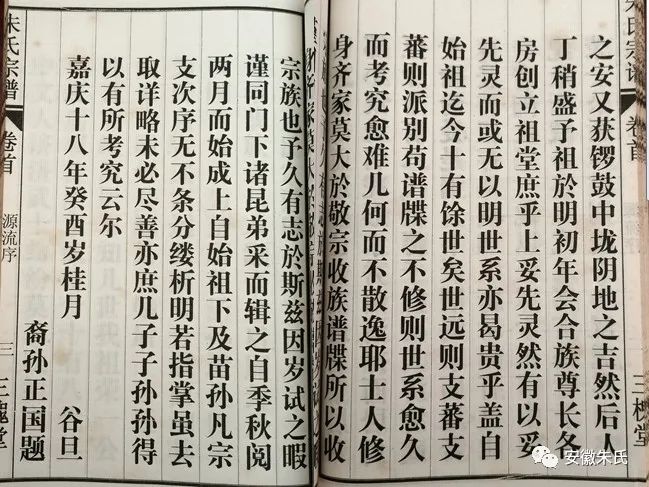 朱氏宗谱
卷首
三槐堂
之安又获锣鼓中垅阴地之吉然后人
丁稍盛予祖於明初年会合族尊长各
房创立祖堂庶乎上妥先灵然有以妥
先灵而或无以明世系亦曷贵乎盖自
始祖迄今十有馀世矣世远则支蕃支
蕃则派别苟谱牒之不修则世系愈久
而考究愈难几何而不散逸耶士人修
身齐家莫大於敬宗收族谱牒所以收
宗族也予久有志於斯兹因岁试之暇
谨同门下诸昆弟采而辑之自季秋阅
两月而始成上自始祖下及苗孙凡宗
支次序无不条分缕析明若指掌虽去
取详略未必尽善亦庶几子子孙孙得
以有所考究云尔
嘉庆十八年癸酉岁桂月 谷旦
裔孙正国题
朱氏宗谱
卷首
源流序
三
三槐堂
安徽朱氏